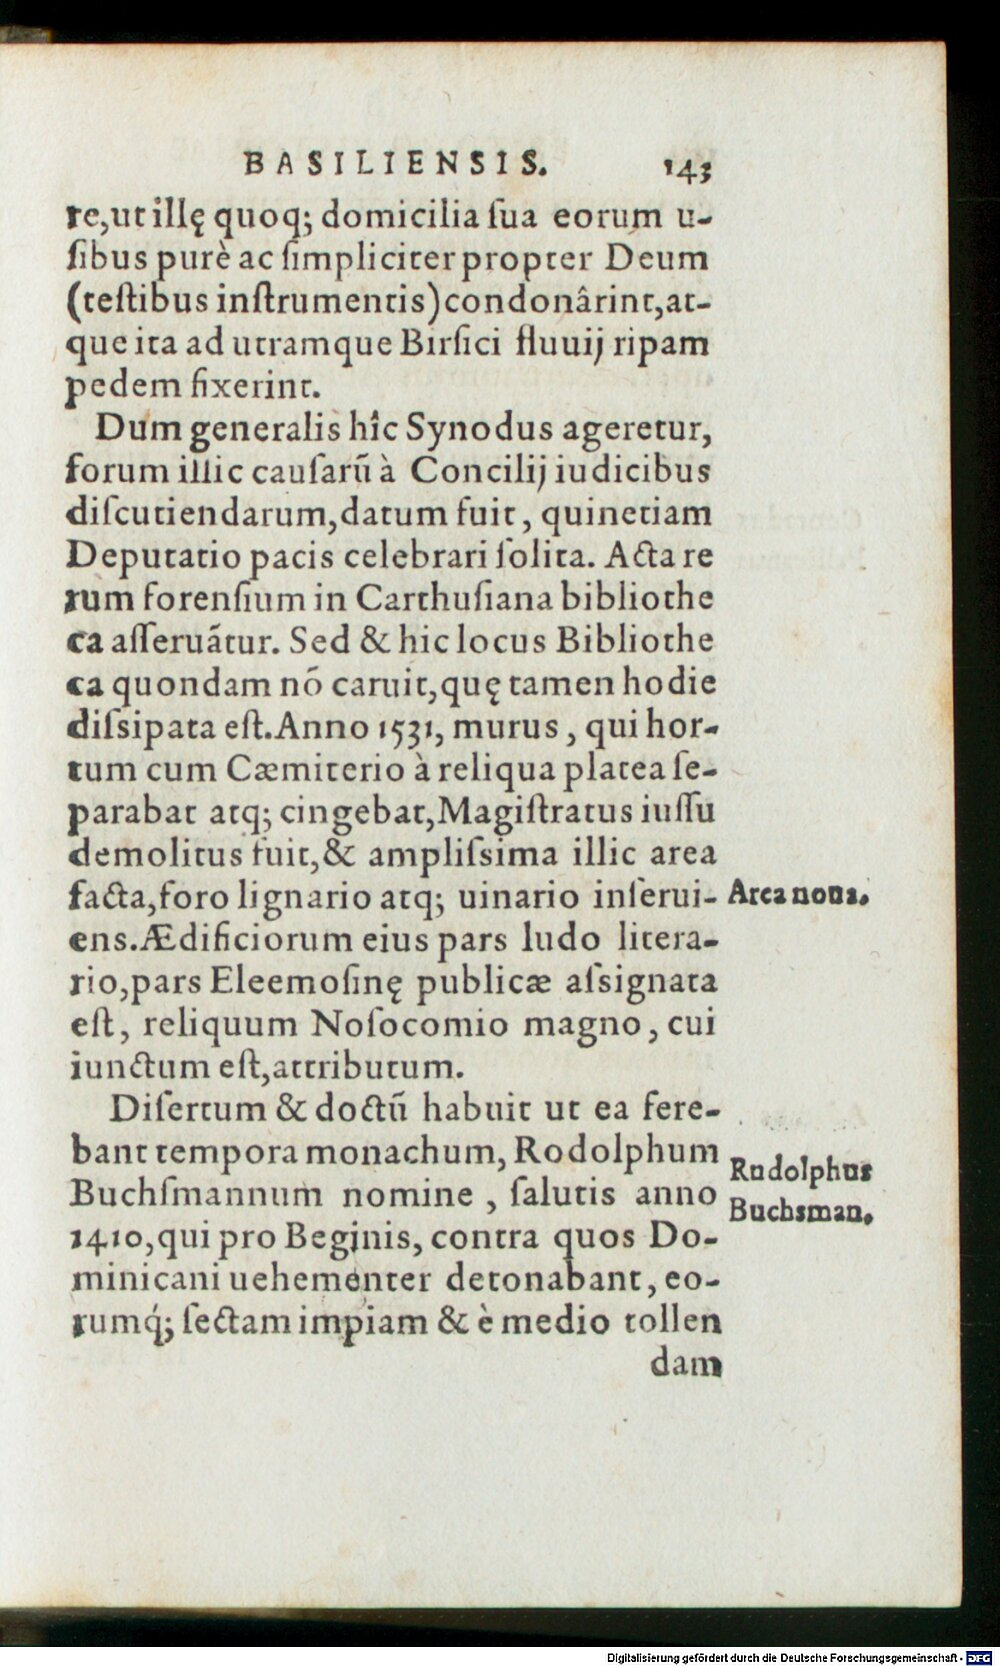 BASILIENSIS. 143
re,ut illę quoq; domicilia ſua eorum u-
ſibus purè ac ſimpliciter propter Deum
(teſtibus inſtrumentis) condonârint,at-
que ita ad utramque Birſici fluuij ripam
pedem fixerint.
Dum generalis hîc Synodus ageretur,
forum illic cauſarũ à Concilij iudicibus
diſcutiendarum,datum fuit, quinetiam
Deputatio pacis celebrari ſolita. Acta re
rum forenſium in Carthuſiana bibliothe
ca aſſeruãtur. Sed & hic locus Bibliothe
ca quondam nõ caruit,quę tamen hodie
diſsipata eſt. Anno 1531, murus, qui hor-
tum cum Cæmiterio à reliqua platea ſe-
parabat atq; cingebat,Magiſtratus iuſſu
demolitus fuit,& ampliſsima illic area
facta,foro lignario atq; uinario inſerui-
Area noua.
ens. Ædificiorum eius pars ludo litera-
rio,pars Eleemoſinę publicæ aſsignata
eſt, reliquum Noſocomio magno, cui
iunctum eſt,attributum.
Diſertum & doctũ habuit ut ea fere-
bant tempora monachum, Rodolphum
Rudolphus
Buchſmannum nomine, ſalutis anno
Buchsman.
1410,qui pro Beginis, contra quos Do-
minicani uehementer detonabant, eo-
rumq́; ſectam impiam & è medio tollen
dam
Digitalisierung gefördert durch die Deutsche Forschungsgemeinschaft - DFG